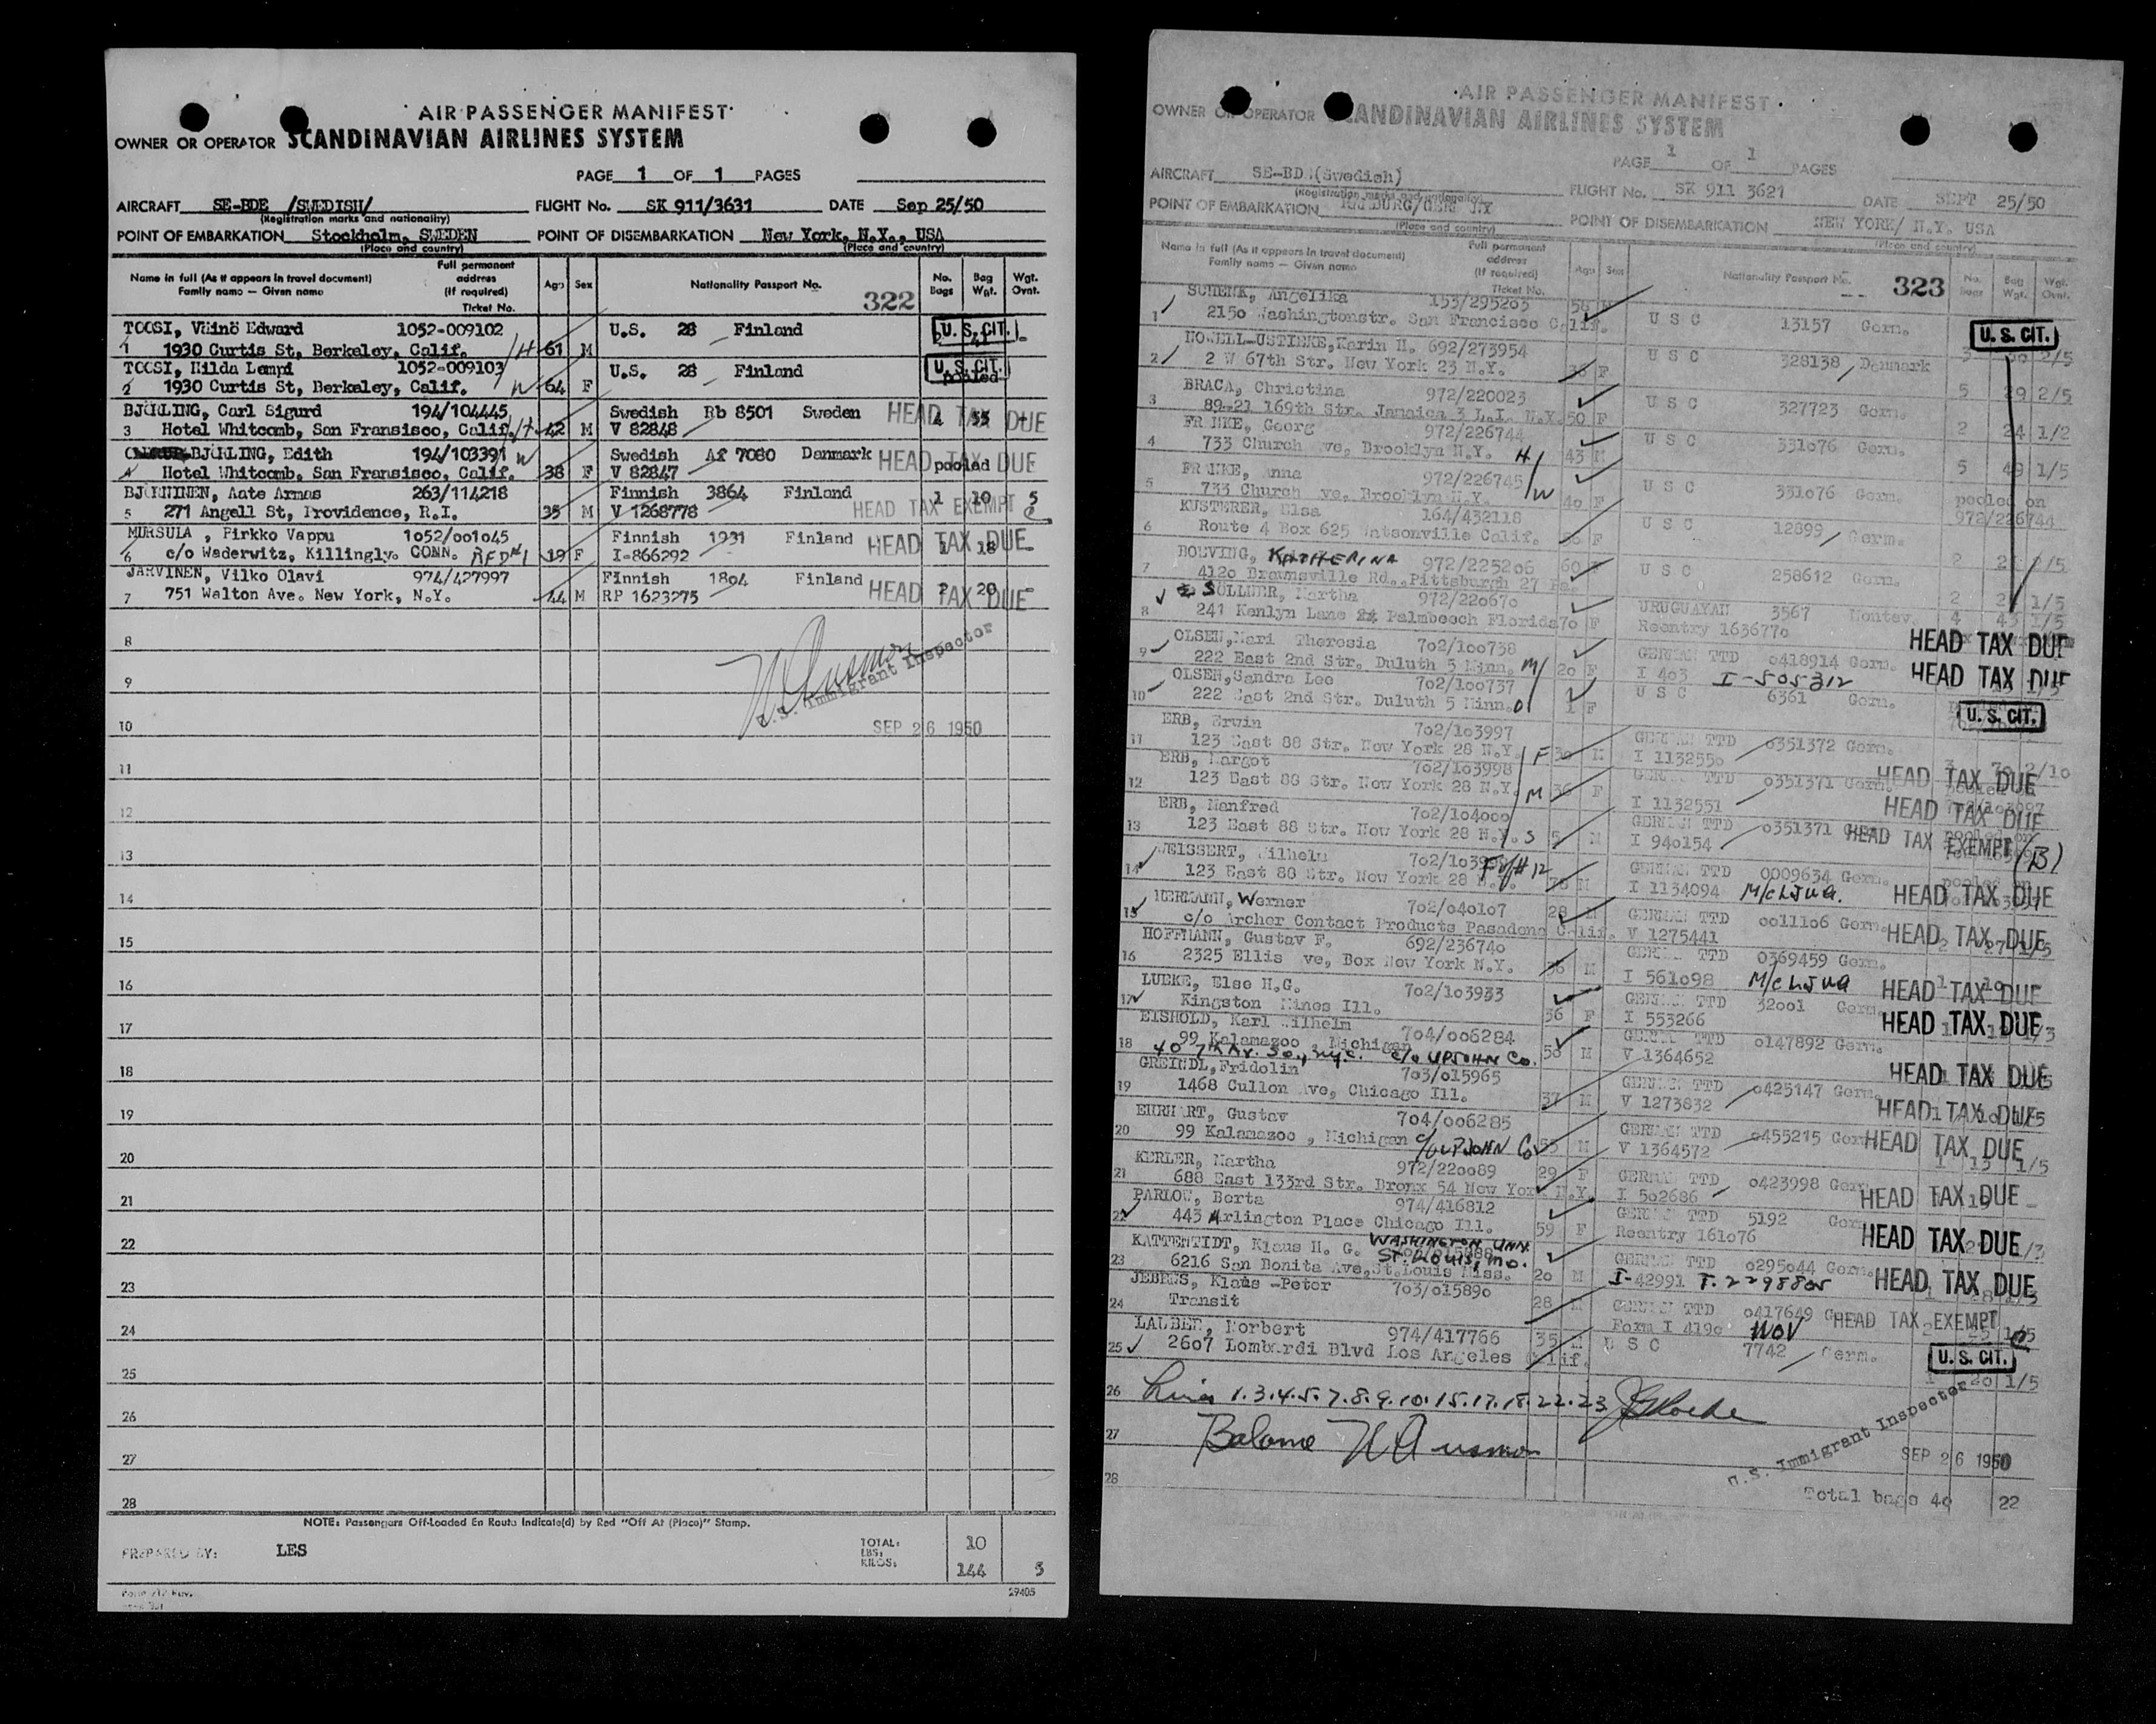 AIR PASSENGER MANIFEST
OWNER OR OPERATOR SCANDINAVIAN AIRLINES SYSTEM
PAGE 1 OF 1 PAGES
AIRCRAFT SE-BDE /SWEDISH/ FLIGHT No. SK 911/3631 DATE Sep 25/50
(Registration marks and nationality)
POINT OF EMBARKATION Stockholm, SWEDEN POINT OF DISEMBARKATION New York, N.Y., USA
(Place and country) (Place and country)
Name in full (As it appears in travel document) Full permanent address (If required) Age Sex Nationality Passport No. No. Bags Bag Wgt. Wgt. Ovnt.
Family name — Given name Ticket No. 322
TOOSI, Väinö Edward 1052-009102 U.S. 28 Finland U.S. CIT.
1 1930 Curtis St, Berkeley, Calif. /H 61 M
TOOSI, Hilda Lempi 1052-009103 U.S. 28 Finland U.S. CIT.
2 1930 Curtis St, Berkeley, Calif. W 64 F pooled
BJÖRLING, Carl Sigurd 194/104445 Swedish Rb 8501 Sweden HEAD TAX DUE
3 Hotel Whitcomb, San Fransisco, Calif. /H 42 M V 82848
BJÖRLING, Edith 194/103391 W Swedish Af 7080 Danmark HEAD TAX DUE
4 Hotel Whitcomb, San Fransisco, Calif. 38 F V 82847 pooled
BJÖRNINEN, Aate Armas 263/114218 Finnish 3864 Finland 1 10 5
5 271 Angell St, Providence, R.I. 35 M V 1268778 HEAD TAX EXEMPT
MURSULA , Pirkko Vappu 1052/001045 Finnish 1931 Finland HEAD TAX DUE
6 c/o Waderwitz, Killingly. CONN. RFD#1 19 F I-866292 1 18
JARVINEN, Vilko Olavi 974/427997 FInnish 1804 Finland HEAD TAX DUE
7 751 Walton Ave. New York, N.Y. 44 M RP 1623275 2 20
8
U.S. Immigrant Inspector
9
10 SEP 26 1950
11
12
13
14
15
16
17
18
19
20
21
22
23
24
25
26
27
28
NOTE: Passengers Off-Loaded En Route Indicate(d) by Red "Off At (Place)" Stamp.
PREPARED BY: LES TOTAL: 10
LBS:
KILOS: 144 5
29405
AIR PASSENGER MANIFEST
OWNER OR OPERATOR SCANDINAVIAN AIRLINES SYSTEM
PAGE 1 OF 1 PAGES
AIRCRAFT (Swedish) FLIGHT No. SK 911 3621 DATE SEPT 25/50
(Registration marks and nationality)
POINT OF EMBARKATION POINT OF DISEMBARKATION NEW YORK/ N.Y. USA
(Place and country) (Place and country)
Name in full (As it appears in travel document) Full permanent address (If required) Age Sex Nationality Passport No. No. Bags Bag Wgt. Wgt. Ovnt.
Family name — Given name Ticket No. 323
SCHENK, Angelika 153/295203 U S C 13157 Germ. U.S. CIT.
1 2150 Washingtonstr. San Francisco Calif.
HOWELL-USTIEKE, Karin H. 692/273954 U S C 328138 Denmark
2 2 W 67th Str. New York 23 N.Y. F 5 29 2/5
BRACA, Christina 972/220023 U S C 327723 Germ.
3 89-21 169th Str. Jamaica 3 L.I. N.Y. 50 F 2 24 1/2
FRANKE, Georg 972/226744 U S C 331076 Germ.
4 733 Church Ave, Brooklyn N.Y. H 43 M 5 49 1/5
FRANKE, Anna 972/226745 U S C 331076 Germ. pooled on
5 733 Church Ave, Brooklyn N.Y. W 40 F 972/226744
KUSTERER, Elsa 164/432118 U S C 12899 Germ.
6 Route 4 Box 625 Watsonville Calif. F
BOLVING, KATHERINA 972/225206 60 F U S C 258612 Germ.
7 4120 Brownsville Rd., Pittsburgh 27 Pa.
SÖLLNER, Martha 972/220670 URUGUAYAN 3567 Montev.
8 241 Kenlyn Lane Palmbeech Florida 70 F Reentry 1636770 HEAD TAX DUE
OLSEN, Mari Theresia 702/100738 GERMAN TTD 0418914 Germ. HEAD TAX DUE
9 222 East 2nd Str. Duluth 5 Minn. M 20 F I 403 I-505312
OLSEN, Sandra Lee 702/100737 U S C 6361 Germ. U.S. CIT.
10 222 East 2nd Str. Duluth 5 Minn. D 1 F
ERB, Erwin 702/103997 GERMAN TTD 0351372 Germ.
11 123 East 88 Str. New York 28 N.Y. F M I 1132550 HEAD TAX DUE
ERB, Margot 702/103998 GERMAN TTD 0351371 Germ.
12 123 East 88 Str. New York 28 N.Y. M 36 F I 1132551 HEAD TAX DUE
ERB, Manfred 702/104000 GERMAN TTD 0351371 HEAD TAX EXEMPT (B)
13 123 East 88 Str. New York 28 N.Y. S 5 M I 940154
WEISSERT, Wilhelm F of #12 GERMAN TTD 0009634 Germ.
14 123 East 88 Str. New York 28 N.Y. M I 1134094 HEAD TAX DUE
HERMANN, Werner 702/040107 28 M GERMAN TTD 0011106 Germ. HEAD TAX DUE
15 c/o Archer Contact Products Pasadena Calif. V 1275441
HOFFMANN, Gustav F. 692/236740 GERMAN TTD 0369459 Germ.
16 2325 Ellis Ave, Box New York N.Y. 36 M I 561098 HEAD TAX DUE
LUBKE, Else H.G. 702/103933 GERMAN TTD 32001 Germ.
17 Kingston Mines Ill. 56 F I 553266 HEAD TAX DUE
EISHOLD, Karl Wilhelm 704/006284 GERMAN TTD 0147892 Germ.
18 99 Kalamazoo , Michigan 58 M V 1364652 HEAD TAX DUE
40 7th Av. So., NYC. c/o UPJOHN Co.
GREINDL, Fridolin 703/015965 GERMAN TTD 0425147 Germ. HEAD TAX DUE
19 1468 Cullon Ave, Chicago Ill. 37 M V 1273832
EHRHART, Gustav 704/006285 GERMAN TTD 0455215 Germ. HEAD TAX DUE
20 99 Kalamazoo , Michigan c/o UPJOHN Co 55 M V 1364572 1 13 1/5
KERLER, Martha 972/220089 29 F GERMAN TTD 0423998 Germ. HEAD TAX DUE
21 688 East 133rd Str. Bronx 54 New York N.Y. I 502686
PARLOW, Berta 974/416812 GERMAN TTD 5192 Germ. HEAD TAX DUE
22 443 Arlington Place Chicago Ill. 59 F Reentry 161076
KATTENTIDT, Klaus H. G. WASHINGTON UNN. GERMAN TTD 0295044 Germ. HEAD TAX DUE
23 6216 San Bonita Ave, St.Louis Miss. St. Louis, Mo. 20 M I-42991
JEBENS, Klaus -Peter 703/015890 28 M GERMAN TTD 0417649 HEAD TAX EXEMPT
24 Transit Form I 419c NOV
LAUBER, Norbert 974/417766 35 M U S C 7742 Germ. U.S. CIT.
25 2607 Lombardi Blvd Los Angeles Calif. 1 20 1/5
26 1.3.4.5.7.8.9.10.15.17.18.22.23
U.S. Immigrant Inspector
27 Balance SEP 26 1950
28 Total bags 40 22